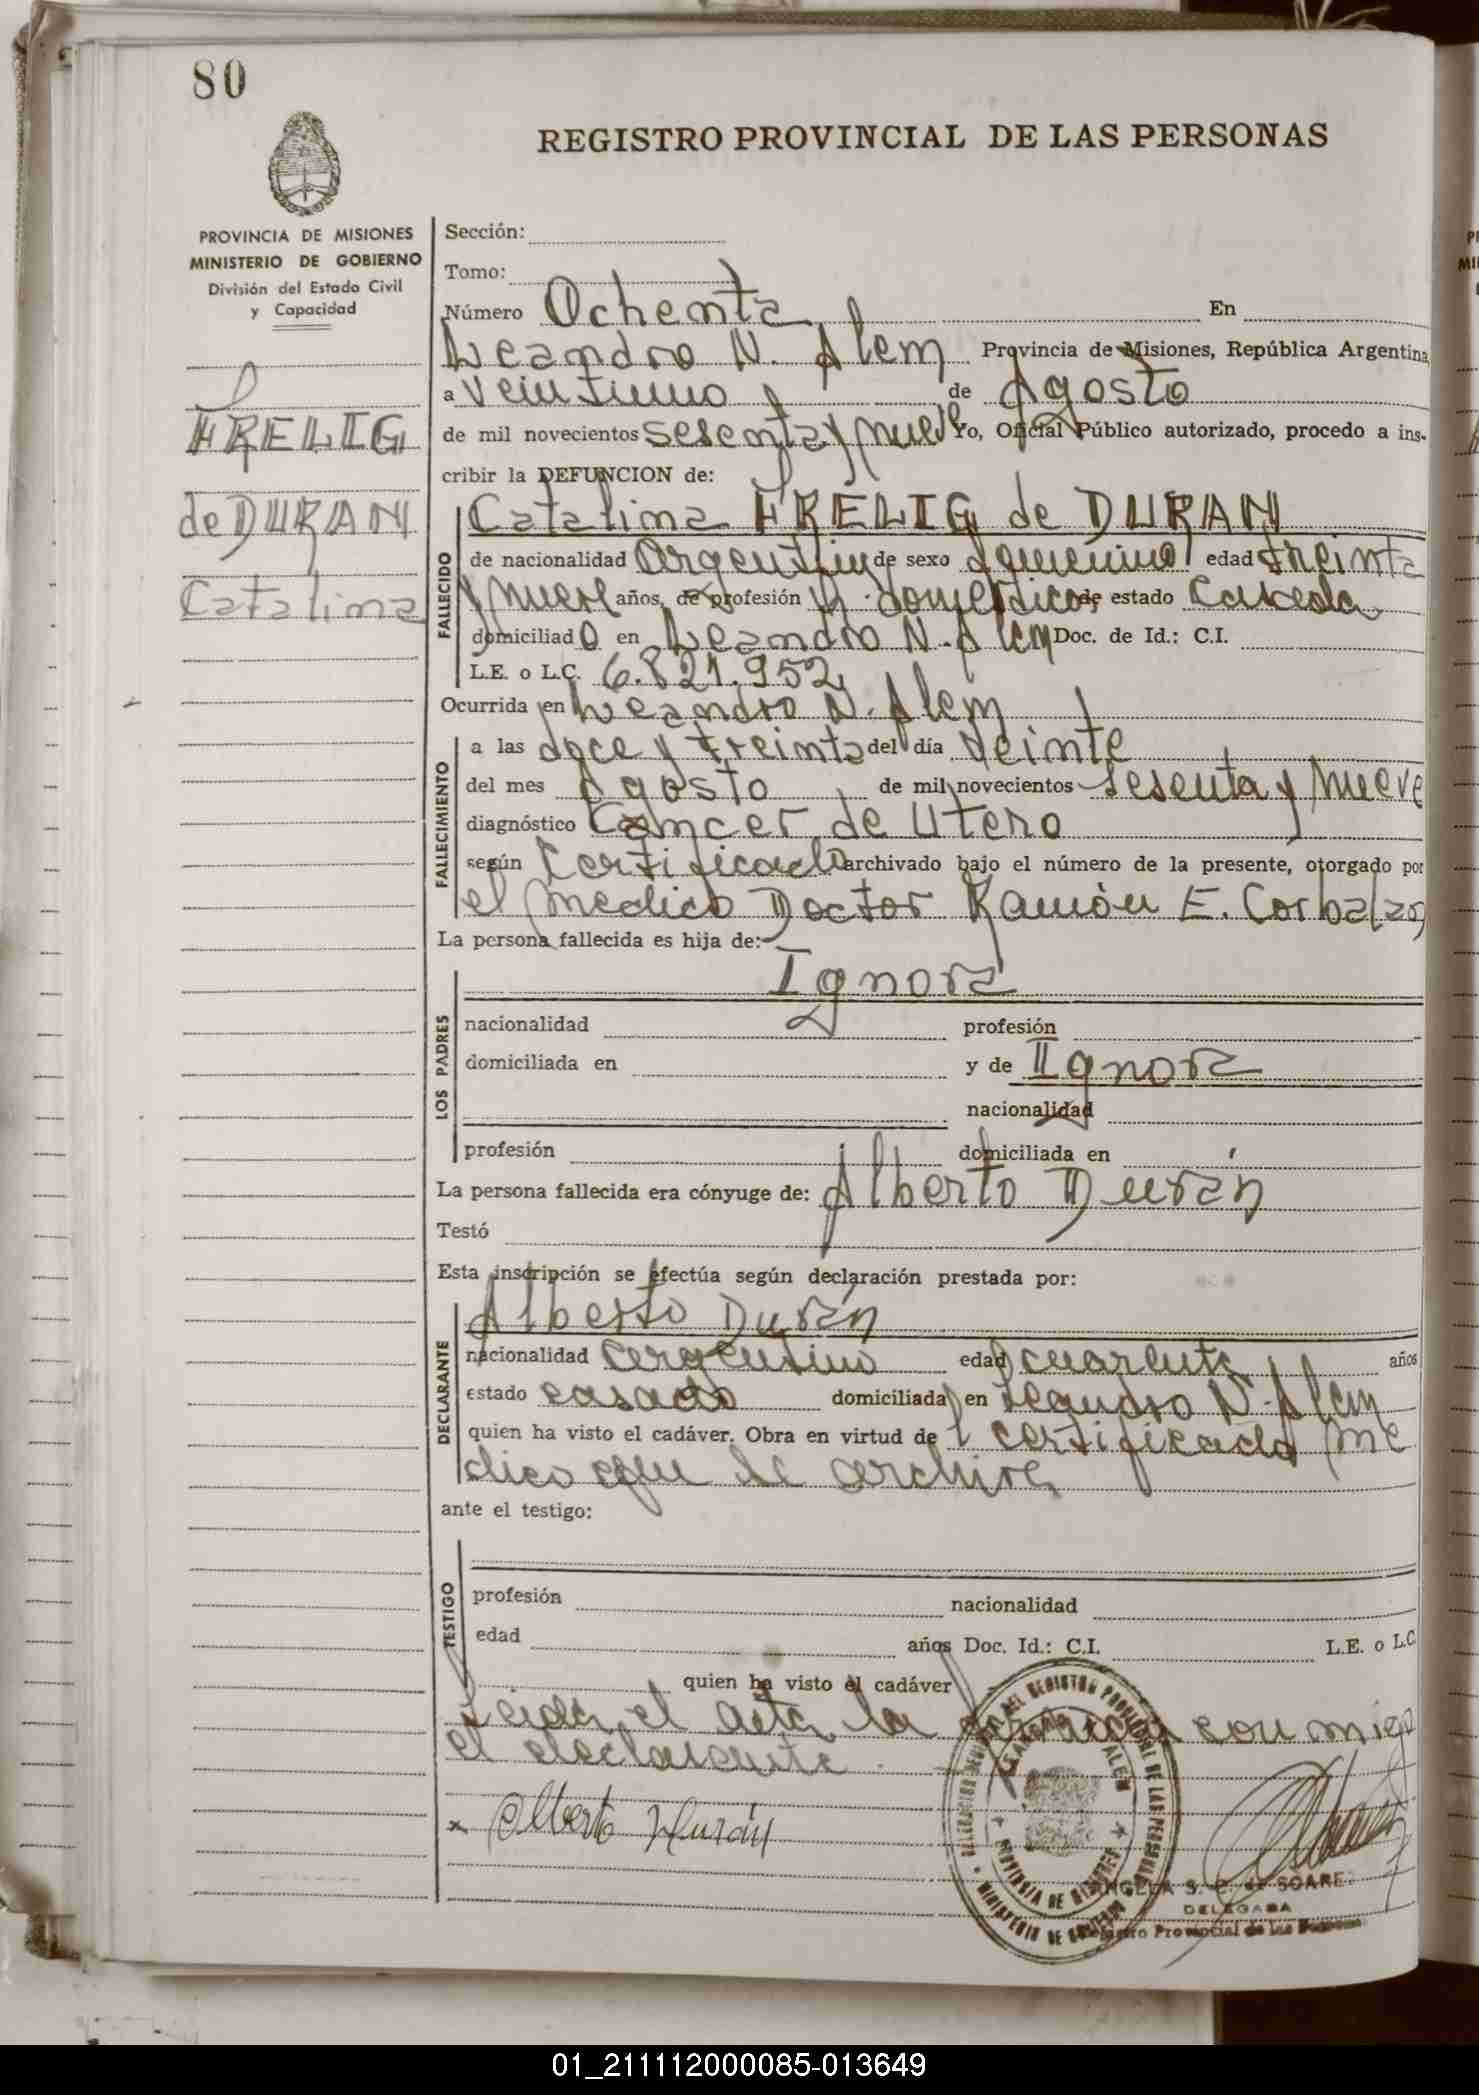 80
REGISTRO PROVINCIAL DE LAS PERSONAS
PROVINCIA DE MISIONES
MINISTERIO DE GOBIERNO
División del Estado Civil
y Capacidad
FRELIG
de DURAN
Catalina
Sección:
Tomo:
Número Ochenta En
Leandro N. Alem Provincia de Misiones, República Argentina,
a veintiuno de Agosto
de mil novecientos sesenta y nueve Yo, Oficial Público autorizado, procedo a ins-
cribir la DEFUNCION de:
Catalina FRELIG de DURAN
FALLECIDO
de nacionalidad Argentina de sexo femenino edad treinta
y nueve años, de profesión q. domésticos de estado Casada
domiciliado en Leandro N. Alem Doc. de Id.: C.I.
L.E. o L.C. 6.821.952
Ocurrida en Leandro N. Alem
FALLECIMIENTO
a las doce y treinta del día veinte
del mes Agosto de mil novecientos sesenta y nueve
diagnóstico Cancer de Utero
según Certificado archivado bajo el número de la presente, otorgado por
el medico Doctor Ramón E. Corbalan
La persona fallecida es hija de:
LOS PADRES
Ignora
nacionalidad profesión
domiciliada en y de Ignora
nacionalidad
profesión domiciliada en
La persona fallecida era cónyuge de: Alberto Durán
Testó
Esta inscripción se efectúa según declaración prestada por:
DECLARANTE
Alberto Durán
nacionalidad argentino edad cuarenta años
estado casado domiciliada en Leandro N. Alem
quien ha visto el cadáver. Obra en virtud de l certificado me
dico que se archiva
ante el testigo:
TESTIGO
profesión nacionalidad
edad años Doc. Id.: C.I. L.E. o L.C.
quien ha visto el cadáver
Leida el acta la firma con migo
el declarante
x Alberto Durán
DELEGACION DEL REGISTRO PROVINCIAL DE LAS PERSONAS
LEANDRO N. ALEM
PROVINCIA DE MISIONES
MINISTERIO DE GOBIERNO
ANGELA S. de SOARE
DELEGADA
Registro Provincial de las Personas
01_211112000085-013649